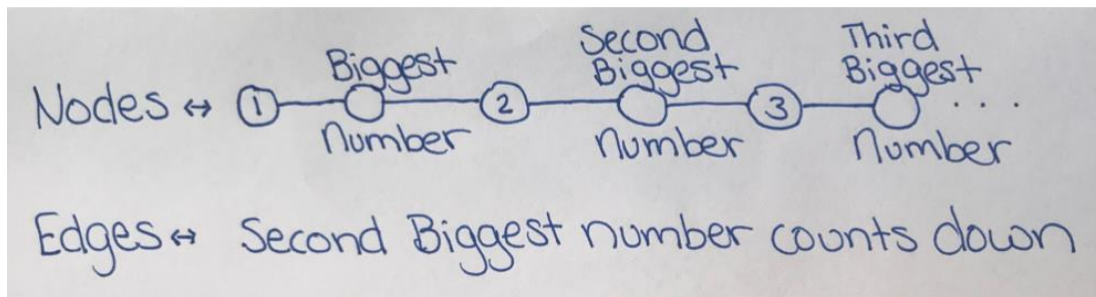 Nodes ↔ 1 Biggest Number 2 Second Biggest Number 3 Third Biggest Number . . .
Edges ↔ Second Biggest number counts down